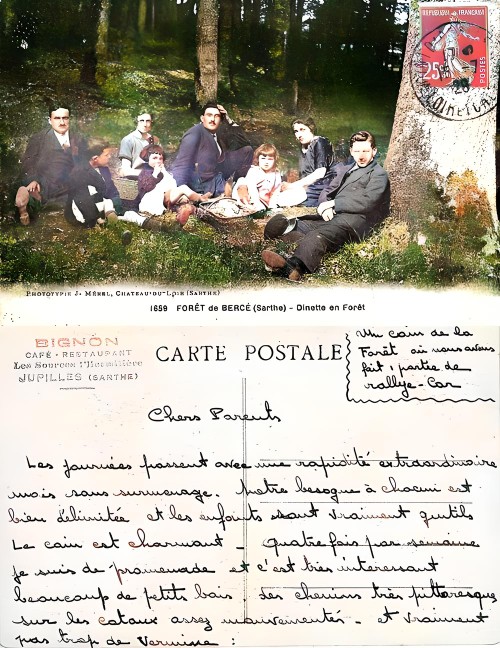 REPUBLIQUE FRANÇAISE
25c
POSTES
PHOTOTYPIE J. MÉREL, CHATEAU-DU-LOIR (SARTHE)
1659 FORÊT de BERCÉ (Sarthe) - Dinette en Forêt
BIGNON
CAFÉ - RESTAURANT
Les Sources l'Hermitière
JUPILLES (SARTHE)
CARTE POSTALE
Un coin de la
Forêt où nous avons
fait 1 partie de
rallye-Car
Chers Parents
Les journées passent avec une rapidité extraordinaire
mais sans surmenage. Notre besogne à chacun est
bien délimitée et les enfants sont vraiment gentils
Le coin est charmant - Quatre fois par semaine
je suis de promenade et c'est très intéressant
beaucoup de petits bois. Des chemins très pittoresques
sur les coteaux assez mouvementés - et vraiment
pas trop de Vermine :